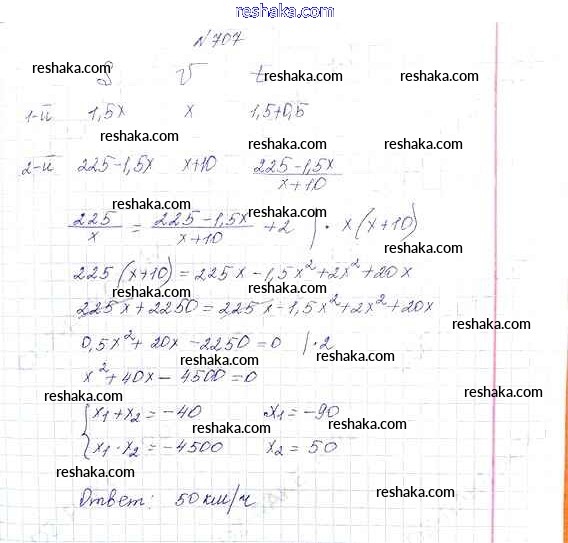 reshaka.com
№707
reshaka.com
S v t reshaka.com reshaka.com
1-й 1,5x x 1,5+0,5
reshaka.com reshaka.com
2-й 225-1,5x x+10 (225-1,5x)/(x+10)
reshaka.com reshaka.com
225/x = (225-1,5x)/(x+10) +2 | · x(x+10)
reshaka.com reshaka.com
225(x+10) = 225x-1,5x²+2x²+20x
reshaka.com reshaka.com
225x+2250=225x-1,5x²+2x²+20x
reshaka.com
0,5x²+20x-2250=0 |·2
reshaka.com reshaka.com
x²+40x-4500=0
reshaka.com reshaka.com
{ x₁+x₂=-40 x₁=-90
reshaka.com reshaka.com
x₁·x₂=-4500 x₂=50
reshaka.com reshaka.com
Ответ: 50км/ч
reshaka.com
reshaka.com